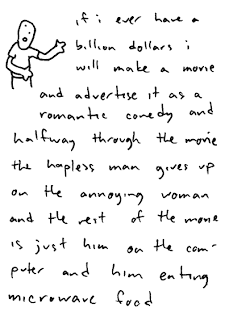 if i ever have a
billion dollars i
will make a movie
and advertise it as a
romantic comedy and
halfway through the movie
the hapless man gives up
on the annoying woman
and the rest of the movie
is just him on the com-
puter and him eating
microwave food